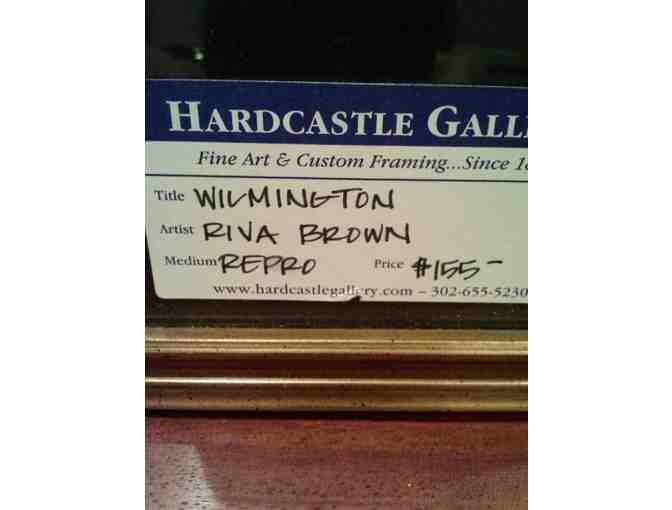 HARDCASTLE GALL
Fine Art & Custom Framing...Since
Title WILMINGTON
Artist RIVA BROWN
Medium REPRO Price $155-
www.hardcastlegallery.com – 302-655-5230